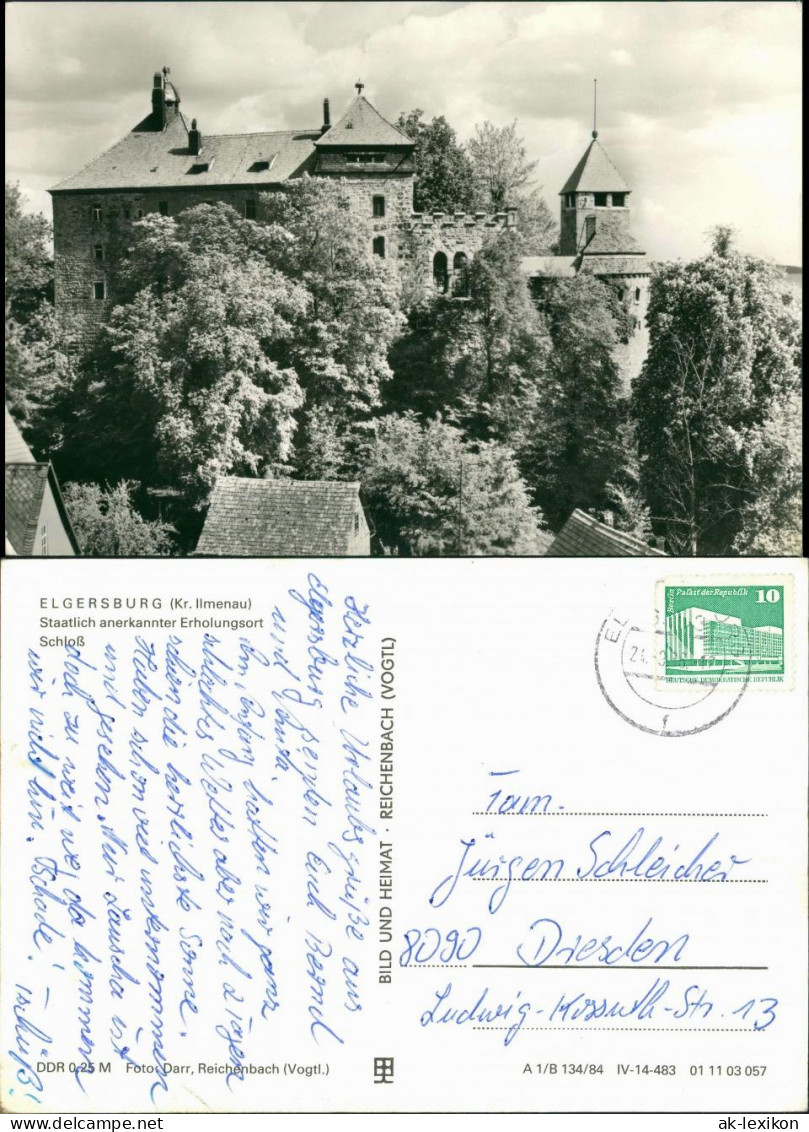 ELGERSBURG (Kr. Ilmenau)
Staatlich anerkannter Erholungsort
Schloß
Herzliche Urlaubsgrüße aus
Elgersburg senden Euch Bernd
und
Am Anfang hatten wir ganz
schlechtes Wetter aber nach 2 Tagen
schien die herrlichste Sonne.
Haben schon viel unternommen
und gesehen. Nur Lauscha ist
halt zu weit weg da kommen
wir nicht hin. Schade! – Tschüß!
BILD UND HEIMAT · REICHENBACH (VOGTL)
Berlin Palast der Republik 10
DEUTSCHE DEMOKRATISCHE REPUBLIK
Fam.
Jürgen Schleicher
8090 Dresden
Ludwig-Kossuth-Str. 13
DDR 0,25 M Foto: Darr, Reichenbach (Vogtl.)
A 1/B 134/84 IV-14-483 01 11 03 057
ak-lexikon